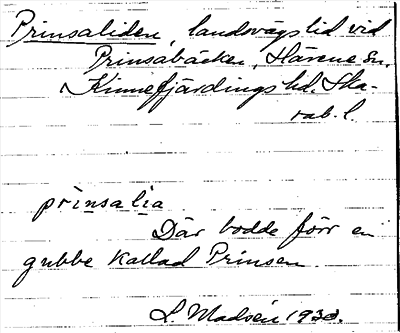 Prinsaliden, landsvägslid vid
Prinsabäcken, Härene sn,
Kinnefjärdings hd. Ska-
rab. l.
prinsalia
Där bodde förr en
gubbe kallad Prinsen.
L. Madsén 1930.